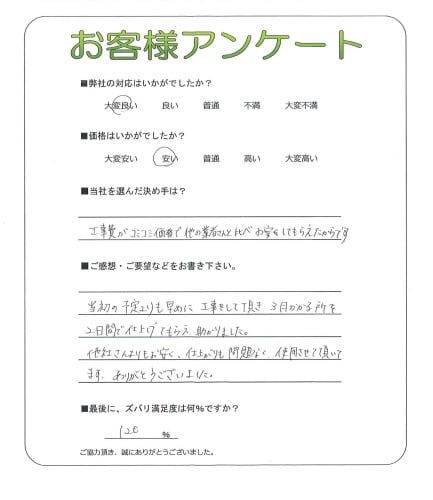 お客様アンケート
■弊社の対応はいかがでしたか？
大変良い 良い 普通 不満 大変不満
■価格はいかがでしたか？
大変安い 安い 普通 高い 大変高い
■当社を選んだ決め手は？
工事費がコミコミ価格で他の業者さんと比べお安くしてもらえたからです
■ご感想・ご要望などをお書き下さい。
当初の予定よりも早めに工事をして頂き 3日かかる所を
2日間で仕上げてもらえ助かりました。
他社さんよりもお安く、仕上がりも問題なく、使用させて頂いて
ます。ありがとうございました。
■最後に、ズバリ満足度は何%ですか？
120 %
ご協力頂き、誠にありがとうございました。